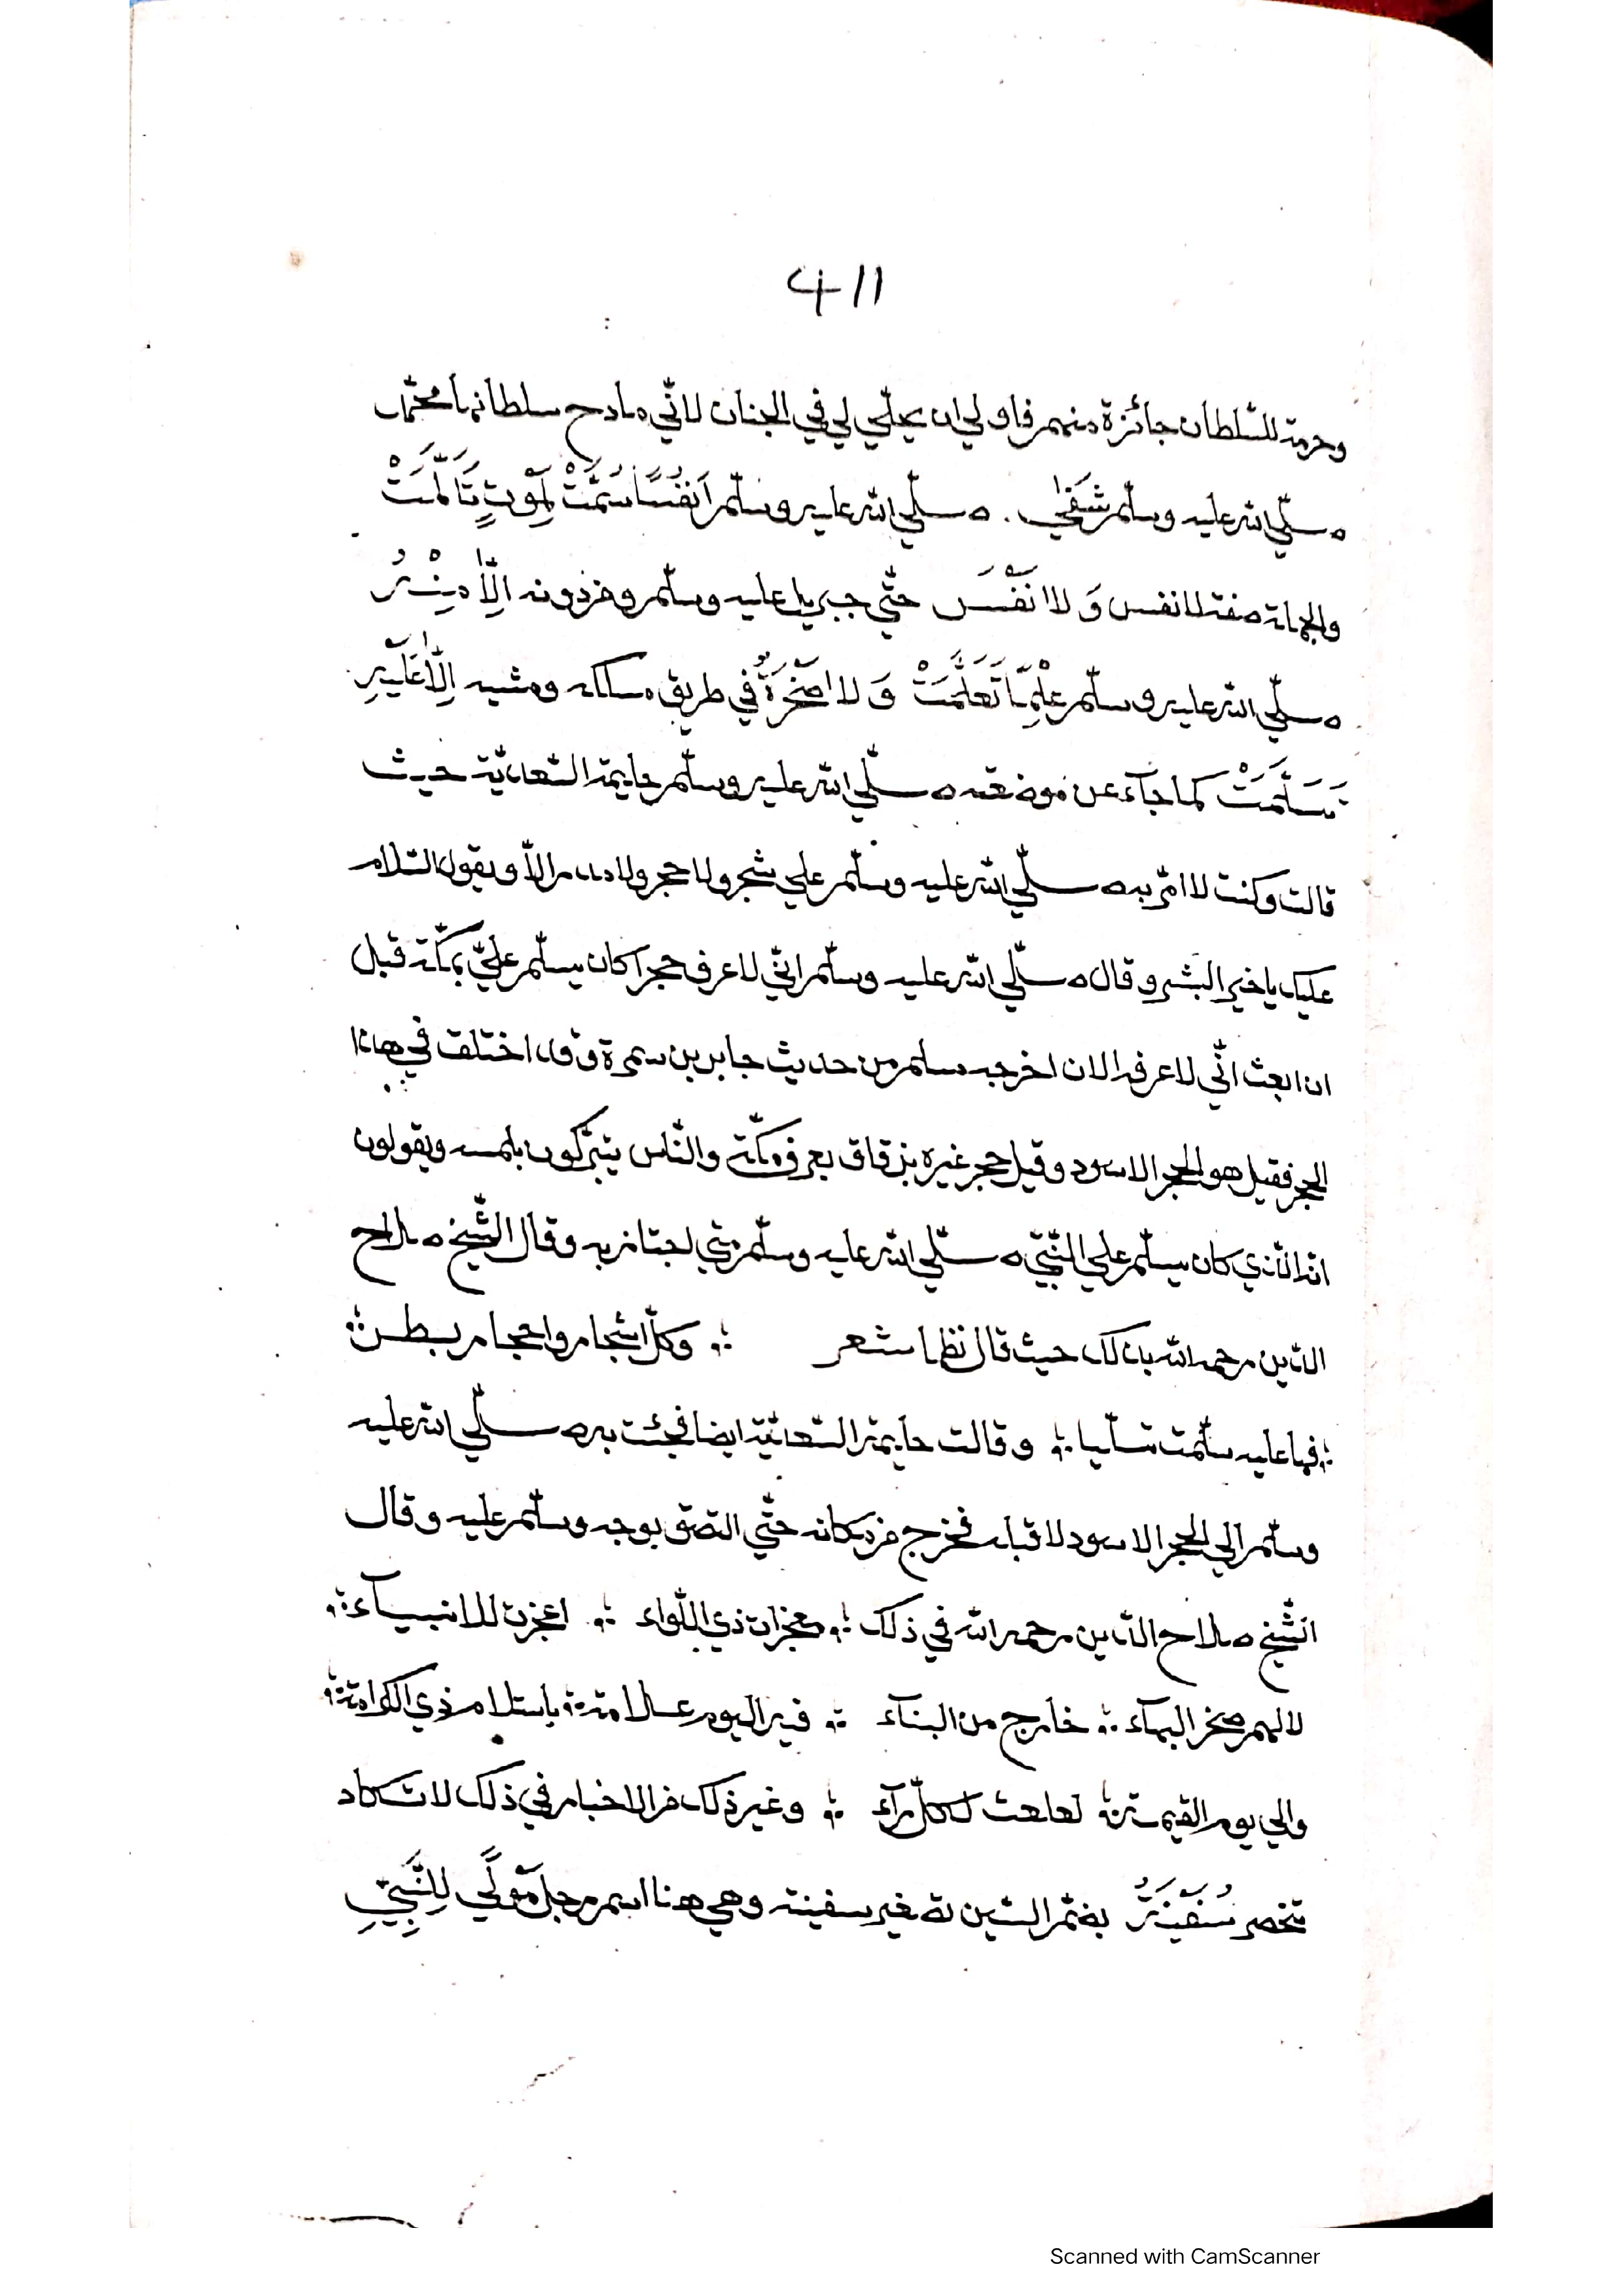 411
وحرمة للسّلطان جائزة منهم فاولي ان يحلّي لي في الجنان لانّي مادح سلطانها محمّد
صلّي الله عليه وسلّم شَفَٰي . صلّي الله عليه وسلّم اَنفُسًا سَمَّتْ لِمَوْتٍ تَأَلَّمَتْ
والجملة صفة لانفس وَلَا اَنْفَسَ حتّي جبريل عليه وسلّم ومن دونه اِلَّا مِنْهُ
صلّي الله عليه وسلّم عِلْمًا تَعَلَّمَتْ وَلَا صَخْرَةٌ في طريق مسلكه ومشيه اِلَّا عَلَيْهِ
تَسَلَّمَتْ كما جآء عن موضعته صلّي الله عليه وسلّم حليمة السّعديّة حيث
قالت وكنت لا امرّ به صلّي الله عليه وسلّم علي شجر ولا حجر ولا مدر الّا ويقول السّلام
عليك يا خير البشر وقال صلّي الله عليه وسلّم انّي لاعرف حجرا كان يسلّم عليّ بمكّة قبل
ان ابعث انّي لاعرفه الان اخرجه مسلم من حديث جابر بن سمرة وقد اختلف في هذا
الحجر فقيل هو الحجر الاسود وقيل حجر غيره بزقاق يعرف بمكّة والنّاس يتبرّكون بلمسه ويقولون
انّه الّذي كان يسلّم علي النّبيّ صلّي الله عليه وسلّم متي اجتاز به وقال الشّيخ صلاح
الدّين رحمه الله بذلك حيث قال نظما شعر ؞ وكلّ اشجار واحجار ببطن ؞
؞ فيها عليه سلّمت تسليما ؞ وقالت حليمة السّعديّة ايضا فجئت به صلّي الله عليه
وسلّم الي الحجر الاسود لاقبله فخرج من مكانه حتّي التصق بوجه وسلّم عليه وقال
الشّيخ صلاح الدّين رحمه الله في ذلك ؞ معجزات ذي اللّواء ؞ اعجزت للانبيآء ؞
لا لهم صخر البهآء ؞ خارج من البنآء ؞ فيه اليوم علامة ؞ باستلام ذي الكرامة ؞
والي يوم القيمة ؞ لعلعت لكلّ رآء ؞ وغير ذلك من الاخبار في ذلك لا تكاد
تخصر سُفَيْنَةُ بضمّ السّين تصغير سفينة وهي هنا اسم رجل مَوْلًي لِلنَّبِيِّ
Scanned with CamScanner